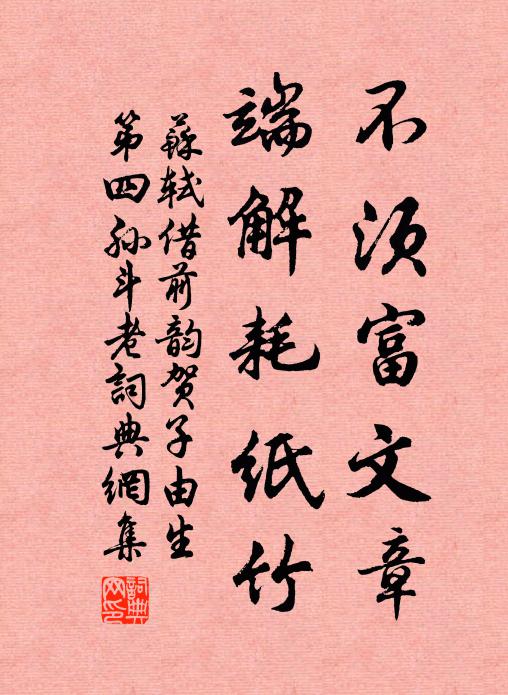 不须富文章
端解耗纸竹
蘇轼借前韵贺子由生
第四孙斗老詞典網集
詞典
网印